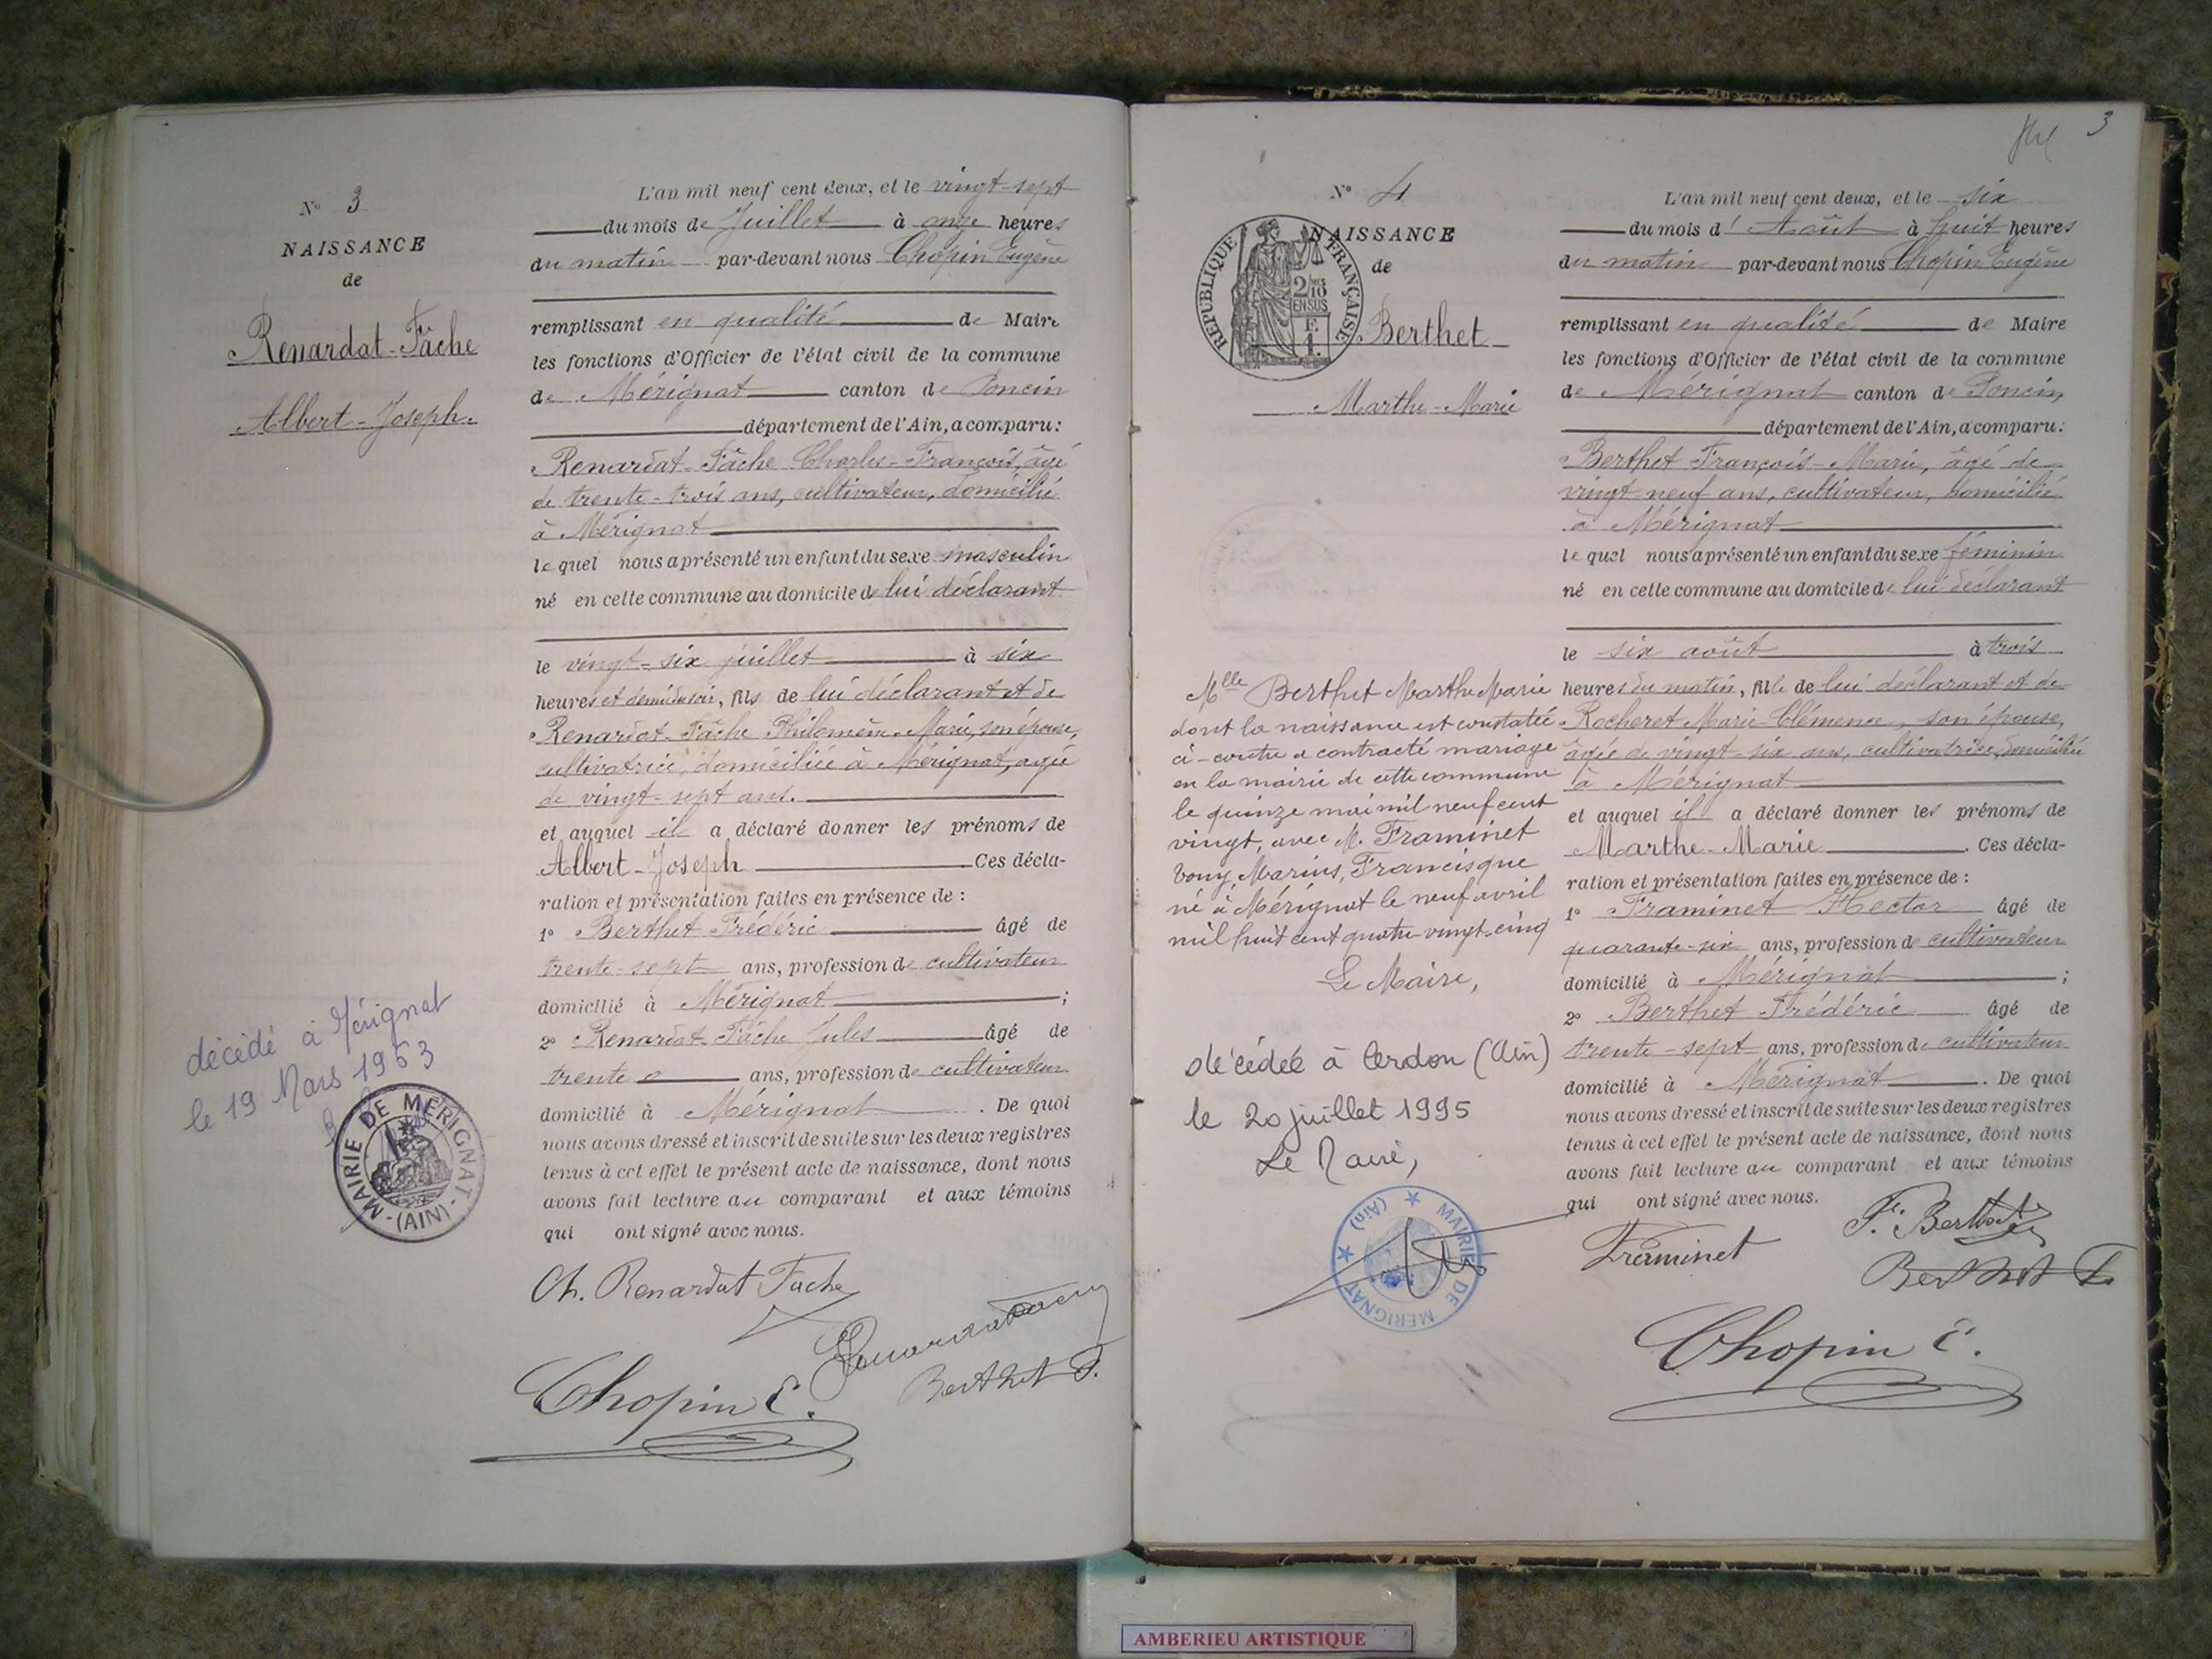 N° 3
NAISSANCE
de
Renardat-Fâche
Albert-Joseph.
décédé à Mérignat
le 19 Mars 1963
MAIRIE DE MERIGNAT - (AIN) -
L'an mil neuf cent deux, et le vingt-sept
du mois de Juillet à onze heures
du matin par-devant nous Chopin Eugène
remplissant en qualité de Maire
les fonctions d'Officier de l'état civil de la commune
de Mérignat canton de Poncin
département de l'Ain, a comparu:
Renardat-Fâche Charles-François, âgé
de trente-trois ans, cultivateur, domicilié
à Mérignat
lequel nous a présenté un enfant du sexe masculin
né en cette commune au domicile de lui déclarant
le vingt-six juillet à six
heures et demie du soir, fils de lui déclarant et de
Renardat-Fâche Philomène-Marie, son épouse,
cultivatrice, domiciliée à Mérignat, agée
de vingt-sept ans.
et auquel il a déclaré donner les prénoms de
Albert-Joseph Ces décla-
ration et présentation faites en présence de :
1° Berthet Frédéric âgé de
trente-sept ans, profession de cultivateur
domicilié à Mérignat ;
2° Renardat-Fâche Jules âgé de
trente ans, profession de cultivateur
domicilié à Mérignat . De quoi
nous avons dressé et inscrit de suite sur les deux registres
tenus à cet effet le présent acte de naissance, dont nous
avons fait lecture au comparant et aux témoins
qui ont signé avec nous.
Ch. Renardat Fache
Chopin E.
Berthet F.
3
N° 4
NAISSANCE
de
REPUBLIQUE FRANÇAISE
2/10 EN SUS
Berthet
Marthe-Marie
Mlle Berthet Marthe Marie
dont la naissance est constatée
ci-contre a contracté mariage
en la mairie de cette commune
le quinze mai mil neuf cent
vingt, avec M. Framinet
Tony, Marius, Francisque
né à Mérignat le neuf avril
mil huit cent quatre-vingt-cinq
Le Maire,
décédée à Cerdon (Ain)
le 20 juillet 1995
Le Maire,
MAIRIE DE MERIGNAT (Ain)
L'an mil neuf cent deux, et le six
du mois d'Août à huit heures
du matin par-devant nous Chopin Eugène
remplissant en qualité de Maire
les fonctions d'Officier de l'état civil de la commune
de Mérignat canton de Poncin,
département de l'Ain, a comparu:
Berthet François-Marie, âgé de
vingt neuf ans, cultivateur, domicilié
à Mérignat
lequel nous a présenté un enfant du sexe féminin
né en cette commune au domicile de lui déclarant
le six août à trois
heures du matin, fille de lui déclarant et de
Rocheret Marie-Clémence, son épouse,
agée de vingt-six ans, cultivatrice, domiciliée
à Mérignat
et auquel il a déclaré donner les prénoms de
Marthe-Marie . Ces décla-
ration et présentation faites en présence de :
1° Framinet Hector âgé de
quarante-six ans, profession de cultivateur
domicilié à Mérignat ;
2° Berthet Frédéric âgé de
trente-sept ans, profession de cultivateur
domicilié à Mérignat . De quoi
nous avons dressé et inscrit de suite sur les deux registres
tenus à cet effet le présent acte de naissance, dont nous
avons fait lecture au comparant et aux témoins
qui ont signé avec nous.
Framinet
F. Berthet
Berthet F.
Chopin E.
AMBERIEU ARTISTIQUE